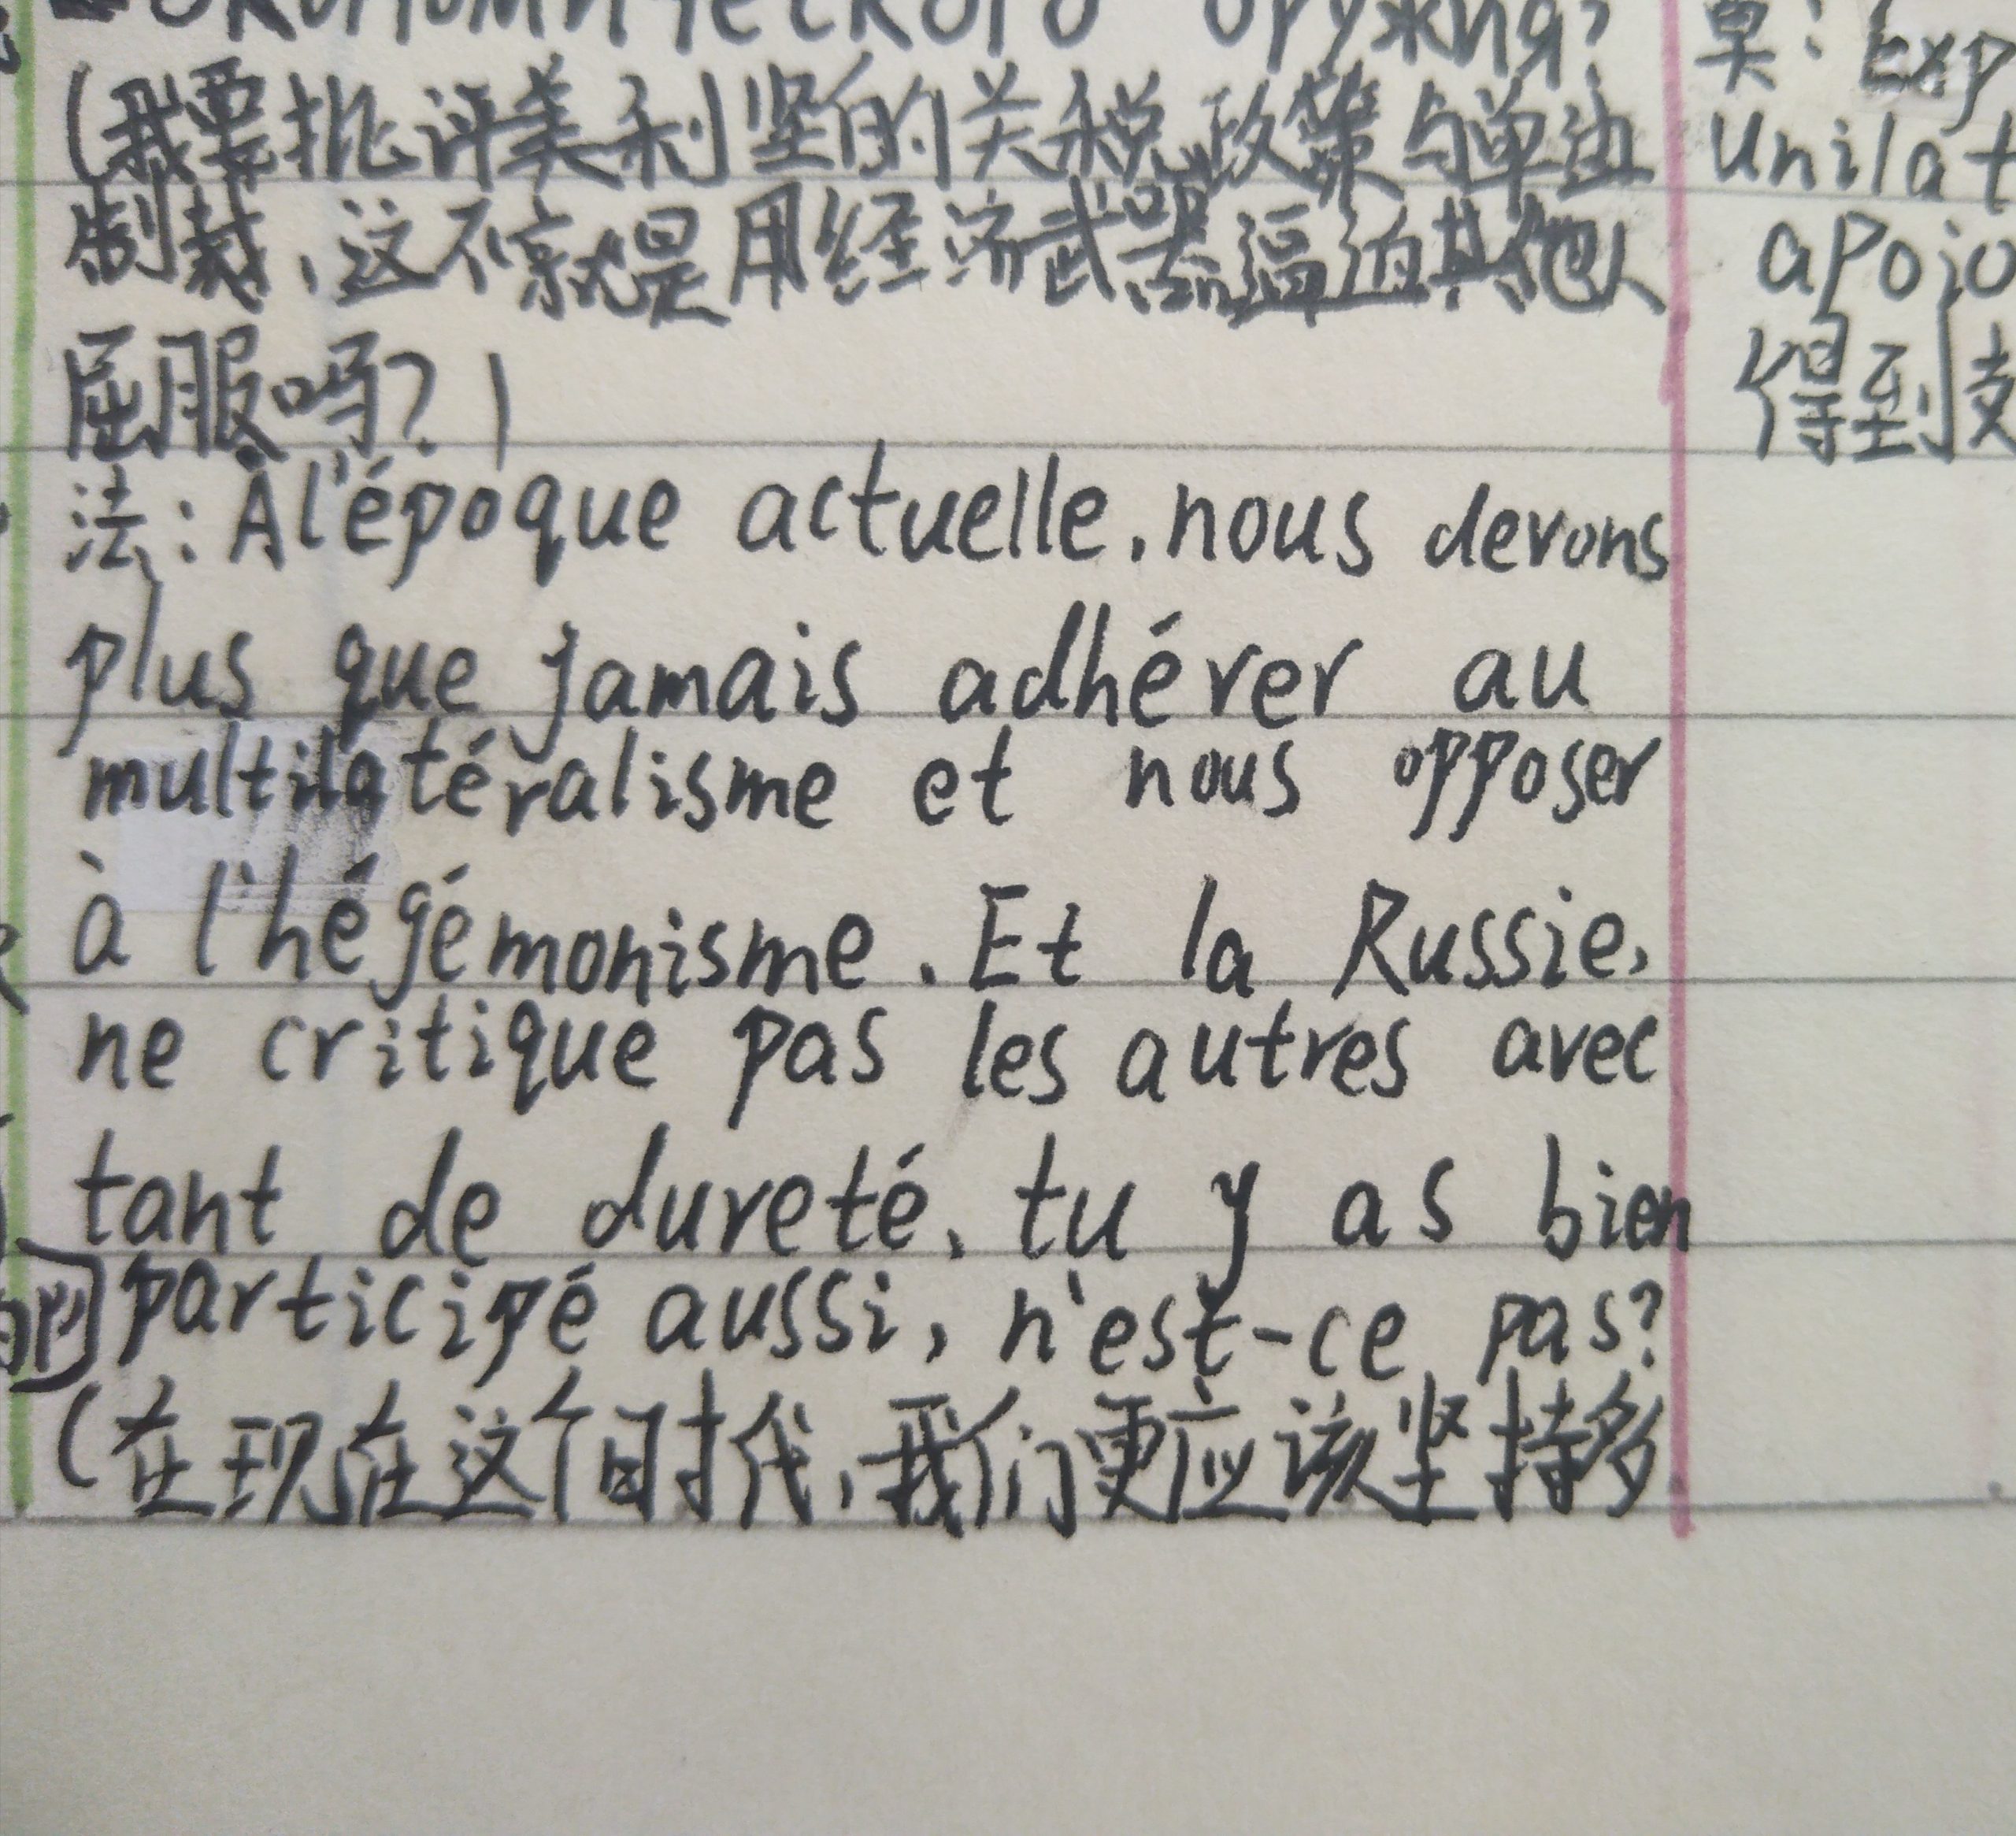 экономического оружия?
(我要批评美利坚的关税政策与单边
制裁，这不就是用经济武器逼迫其他人
屈服吗？)
法：À l'époque actuelle, nous devons
plus que jamais adhérer au
multilatéralisme et nous opposer
à l'hégémonisme. Et la Russie,
ne critique pas les autres avec
tant de dureté, tu y as bien
participé aussi, n'est-ce pas?
(在现在这个时代，我们更应该坚持多
Exp
Unilat
apoio
得到支